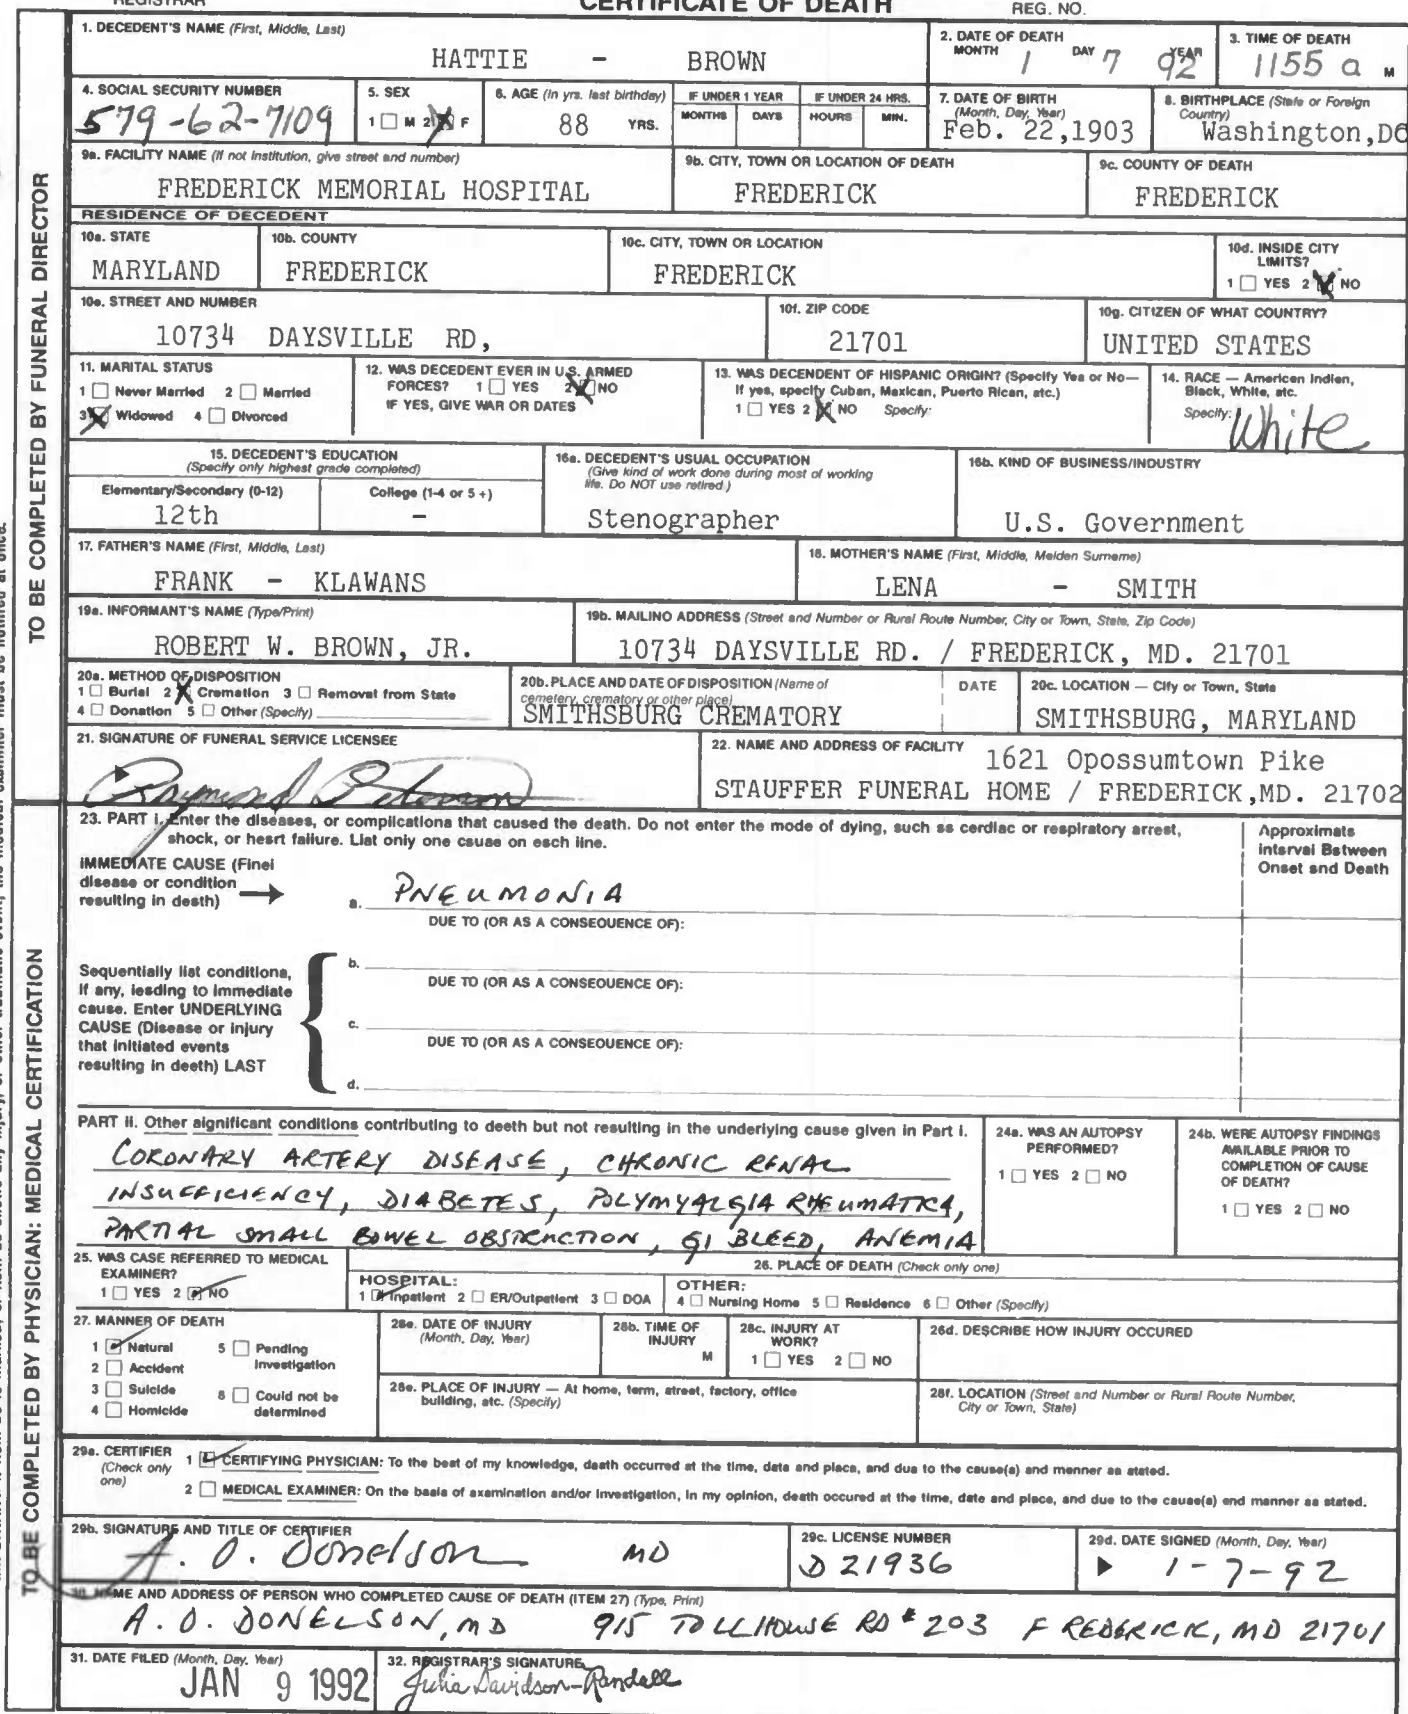 REGISTRAR CERTIFICATE OF DEATH REG. NO.
1. DECEDENT'S NAME (First, Middle, Last)
HATTIE - BROWN
2. DATE OF DEATH
MONTH DAY YEAR
1 7 92
3. TIME OF DEATH
1155 a M
4. SOCIAL SECURITY NUMBER
579-62-7109
5. SEX
1 M 2 F
6. AGE (In yrs. last birthday)
88 YRS.
IF UNDER 1 YEAR
MONTHS DAYS
IF UNDER 24 HRS.
HOURS MIN.
7. DATE OF BIRTH
(Month, Day, Year)
Feb. 22,1903
8. BIRTHPLACE (State or Foreign
Country)
Washington,DC
9a. FACILITY NAME (If not institution, give street and number)
FREDERICK MEMORIAL HOSPITAL
9b. CITY, TOWN OR LOCATION OF DEATH
FREDERICK
9c. COUNTY OF DEATH
FREDERICK
RESIDENCE OF DECEDENT
10a. STATE
MARYLAND
10b. COUNTY
FREDERICK
10c. CITY, TOWN OR LOCATION
FREDERICK
10d. INSIDE CITY
LIMITS?
1 YES 2 NO
10e. STREET AND NUMBER
10734 DAYSVILLE RD,
10f. ZIP CODE
21701
10g. CITIZEN OF WHAT COUNTRY?
UNITED STATES
11. MARITAL STATUS
1 Never Married 2 Married
3 Widowed 4 Divorced
12. WAS DECEDENT EVER IN U.S. ARMED
FORCES? 1 YES 2 NO
IF YES, GIVE WAR OR DATES
13. WAS DECENDENT OF HISPANIC ORIGIN? (Specify Yes or No—
If yes, specify Cuban, Mexican, Puerto Rican, etc.)
1 YES 2 NO Specify:
14. RACE — American Indian,
Black, White, etc.
Specify:
White
15. DECEDENT'S EDUCATION
(Specify only highest grade completed)
Elementary/Secondary (0-12) College (1-4 or 5 +)
12th -
16a. DECEDENT'S USUAL OCCUPATION
(Give kind of work done during most of working
life. Do NOT use retired.)
Stenographer
16b. KIND OF BUSINESS/INDUSTRY
U.S. Government
17. FATHER'S NAME (First, Middle, Last)
FRANK - KLAWANS
18. MOTHER'S NAME (First, Middle, Maiden Surname)
LENA - SMITH
19a. INFORMANT'S NAME (Type/Print)
ROBERT W. BROWN, JR.
19b. MAILING ADDRESS (Street and Number or Rural Route Number, City or Town, State, Zip Code)
10734 DAYSVILLE RD. / FREDERICK, MD. 21701
20a. METHOD OF DISPOSITION
1 Burial 2 Cremation 3 Removal from State
4 Donation 5 Other (Specify)
20b. PLACE AND DATE OF DISPOSITION (Name of
cemetery, crematory or other place)
SMITHSBURG CREMATORY
DATE
20c. LOCATION — City or Town, State
SMITHSBURG, MARYLAND
21. SIGNATURE OF FUNERAL SERVICE LICENSEE
Raymond Peterson
22. NAME AND ADDRESS OF FACILITY 1621 Opossumtown Pike
STAUFFER FUNERAL HOME / FREDERICK,MD. 21702
TO BE COMPLETED BY FUNERAL DIRECTOR
23. PART I. Enter the diseases, or complications that caused the death. Do not enter the mode of dying, such as cardiac or respiratory arrest,
shock, or heart failure. List only one cause on each line.
Approximate
Interval Between
Onset and Death
IMMEDIATE CAUSE (Final
disease or condition
resulting in death)
a. PNEUMONIA
DUE TO (OR AS A CONSEQUENCE OF):
Sequentially list conditions,
if any, leading to immediate
cause. Enter UNDERLYING
CAUSE (Disease or injury
that initiated events
resulting in death) LAST
b.
DUE TO (OR AS A CONSEQUENCE OF):
c.
DUE TO (OR AS A CONSEQUENCE OF):
d.
PART II. Other significant conditions contributing to death but not resulting in the underlying cause given in Part I.
CORONARY ARTERY DISEASE, CHRONIC RENAL
INSUFFICIENCY, DIABETES, POLYMYALGIA RHEUMATICA,
PARTIAL SMALL BOWEL OBSTRUCTION, GI BLEED, ANEMIA
24a. WAS AN AUTOPSY
PERFORMED?
1 YES 2 NO
24b. WERE AUTOPSY FINDINGS
AVAILABLE PRIOR TO
COMPLETION OF CAUSE
OF DEATH?
1 YES 2 NO
25. WAS CASE REFERRED TO MEDICAL
EXAMINER?
1 YES 2 NO
26. PLACE OF DEATH (Check only one)
HOSPITAL:
1 Inpatient 2 ER/Outpatient 3 DOA
OTHER:
4 Nursing Home 5 Residence 6 Other (Specify)
27. MANNER OF DEATH
1 Natural 5 Pending
2 Accident Investigation
3 Suicide 6 Could not be
4 Homicide determined
28a. DATE OF INJURY
(Month, Day, Year)
28b. TIME OF
INJURY
M
28c. INJURY AT
WORK?
1 YES 2 NO
28d. DESCRIBE HOW INJURY OCCURED
28e. PLACE OF INJURY — At home, farm, street, factory, office
building, etc. (Specify)
28f. LOCATION (Street and Number or Rural Route Number,
City or Town, State)
29a. CERTIFIER
(Check only
one)
1 CERTIFYING PHYSICIAN: To the best of my knowledge, death occurred at the time, date and place, and due to the cause(s) and manner as stated.
2 MEDICAL EXAMINER: On the basis of examination and/or investigation, in my opinion, death occured at the time, date and place, and due to the cause(s) and manner as stated.
29b. SIGNATURE AND TITLE OF CERTIFIER
A. O. Donelson MD
29c. LICENSE NUMBER
D 21936
29d. DATE SIGNED (Month, Day, Year)
1-7-92
30. NAME AND ADDRESS OF PERSON WHO COMPLETED CAUSE OF DEATH (ITEM 27) (Type, Print)
A. O. DONELSON, MD 915 TOLLHOUSE RD # 203 FREDERICK, MD 21701
31. DATE FILED (Month, Day, Year)
JAN 9 1992
32. REGISTRAR'S SIGNATURE
Julia Davidson-Randall
TO BE COMPLETED BY PHYSICIAN: MEDICAL CERTIFICATION